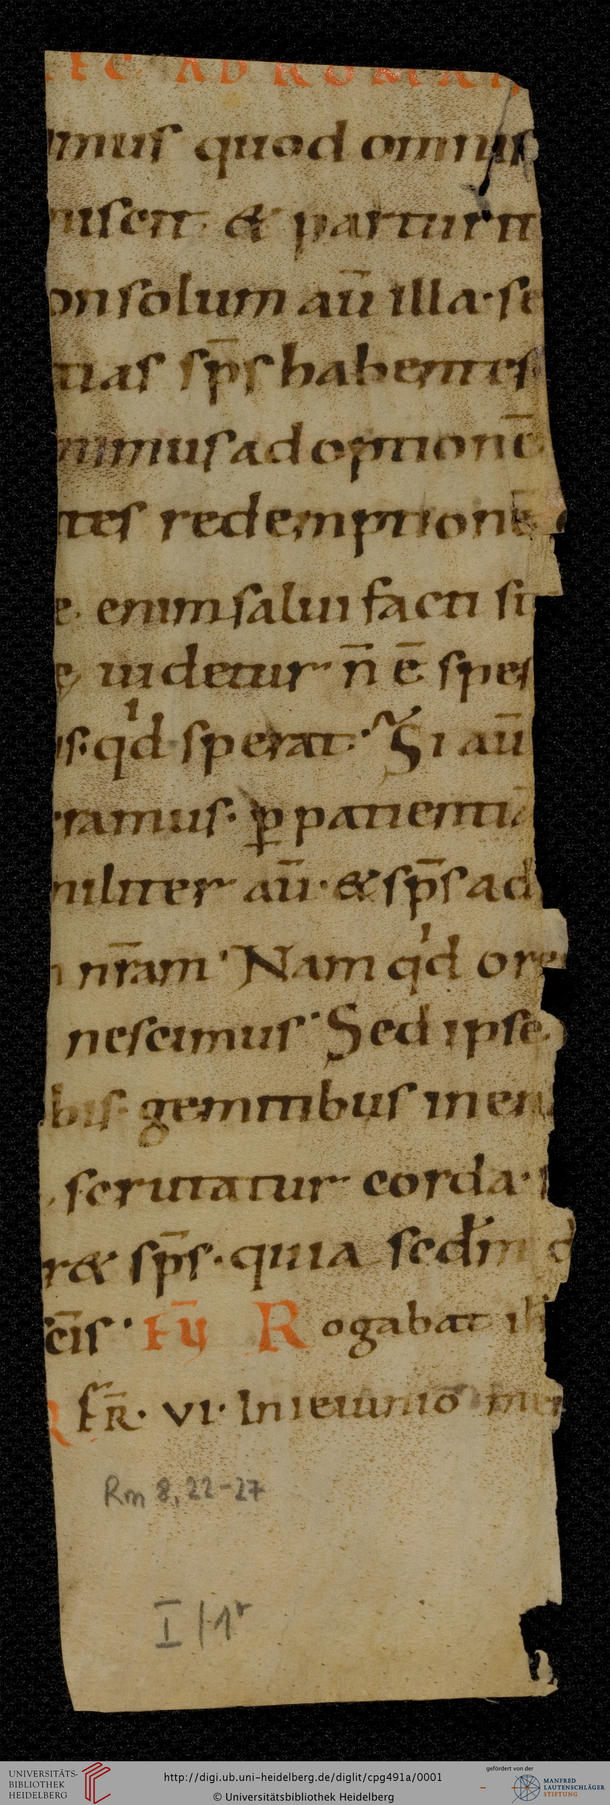 LEC AD ROMAN
mus quod omnis
miscit. & parturit
on solum aū illa. se
tias sp̄s habentes
nimus adoptionē
ctes redemptionē
e. enim salui facti su
e uidetur n̄ ē spes
is. qͥd sperat. Si aū
ramus. ꝑ patientiā
militer aū. & sp̄s ad
nr̄am. Nam qͥd ore
nescimus. Sed ipse
bis. gemitibus inen
scrutatur corda.
r& sp̄s. quia sedm̄ d
cīs. Ev̄ Rogabat
FR̄. VI. In ieiunio
Rm 8,22-27
I/1r
UNIVERSITÄTS-
BIBLIOTHEK
HEIDELBERG
http://digi.ub.uni-heidelberg.de/diglit/cpg491a/0001
© Universitätsbibliothek Heidelberg
gefördert von der
MANFRED
LAUTENSCHLÄGER
STIFTUNG